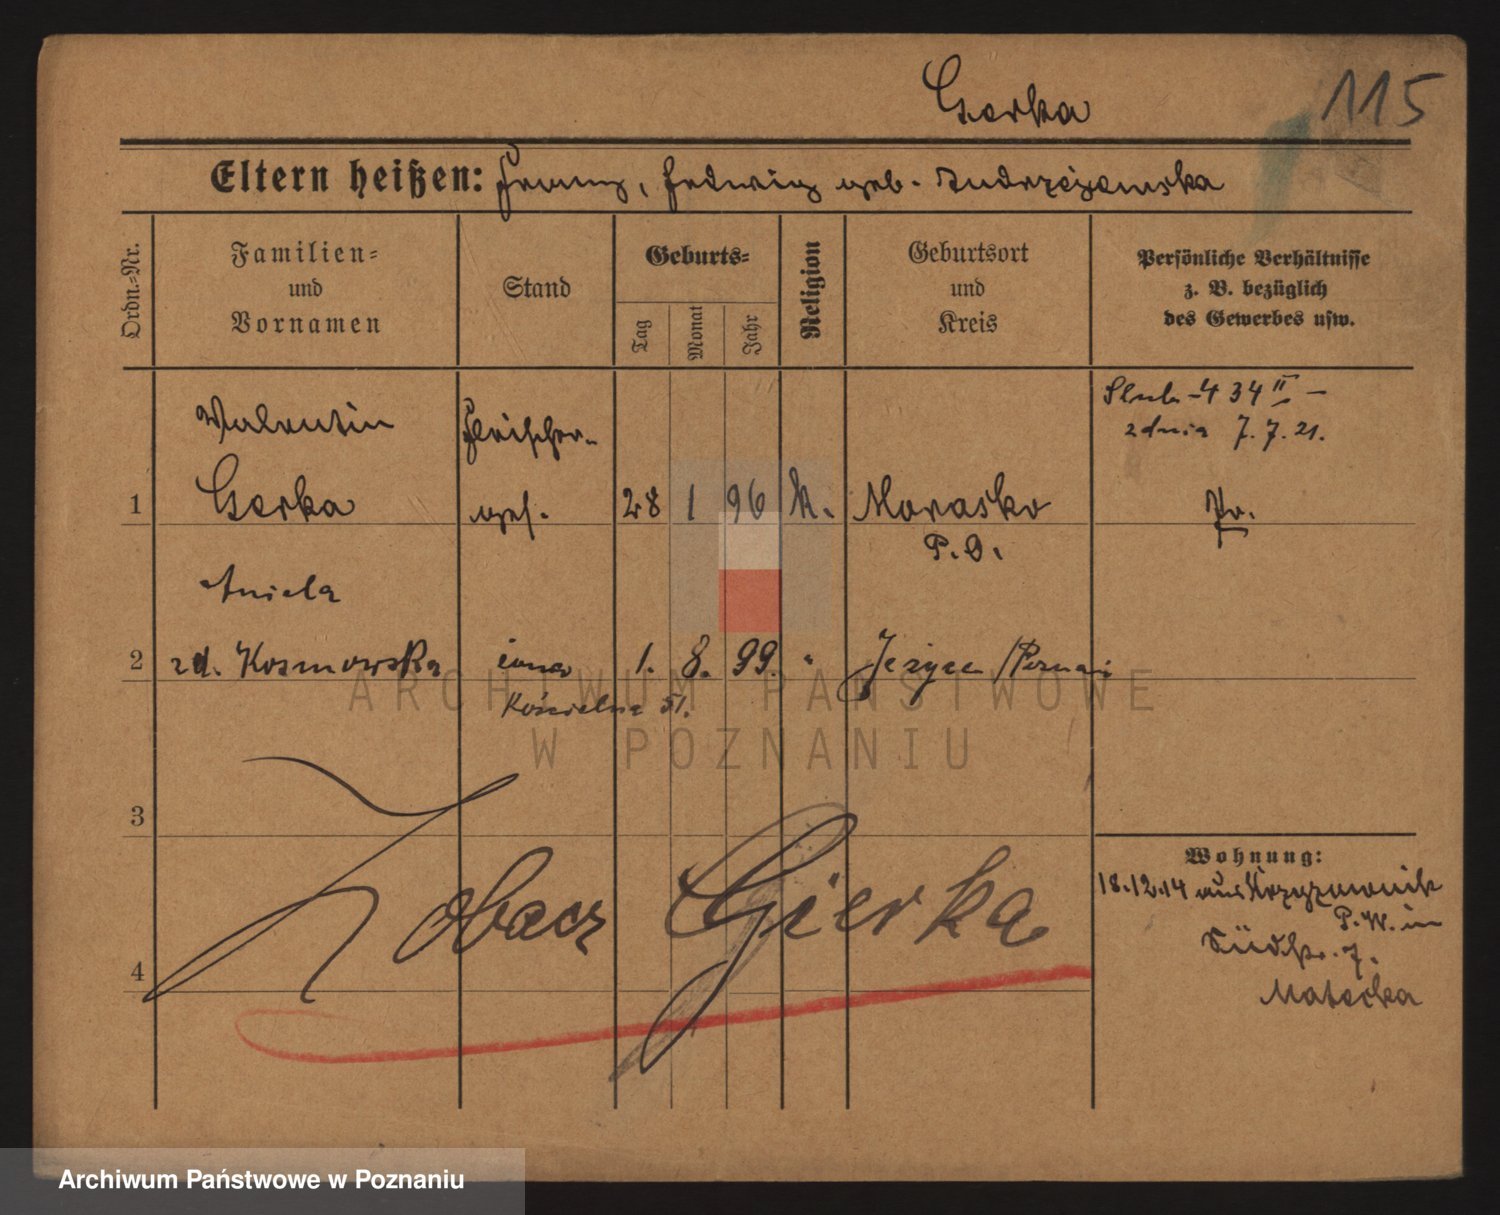 Gerka
115
Eltern heißen: Franz, Hedwig geb. Andrzejewska
Ordn.-Nr.
Familien-
und
Vornamen
Stand
Geburts-
Tag
Monat
Jahr
Religion
Geburtsort
und
Kreis
Persönliche Verhältnisse
z. B. bezüglich
des Gewerbes usw.
Ślub - 434 II -
z dnia 7.7.21.
Valentin Fleischer-
1 Gerka ges. 28 1 96 k. Morasko
P.O.
Aniela
2 zd. Kosmowska żona 1. 8. 99. " Jeżyce / Poznań
Kościelna 51.
ARCHIWUM PAŃSTWOWE
W POZNANIU
3
Zobacz Gierka
4
Wohnung:
18.12.14 aus Krzyżownik
P.W. in
Südstr. 7.
Matecka
Archiwum Państwowe w Poznaniu